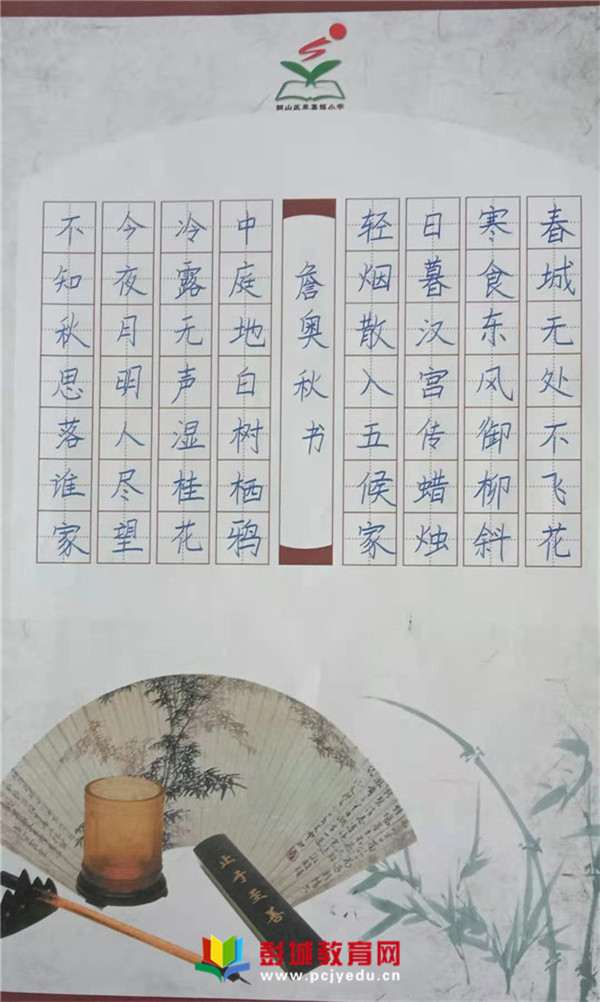 春城无处不飞花
寒食东风御柳斜
日暮汉宫传蜡烛
轻烟散入五候家
詹奥秋书
中庭地白树栖鸦
冷露无声湿桂花
今夜月明人尽望
不知秋思落谁家
止于至善
彭城教育网
www.pcjyedu.cn